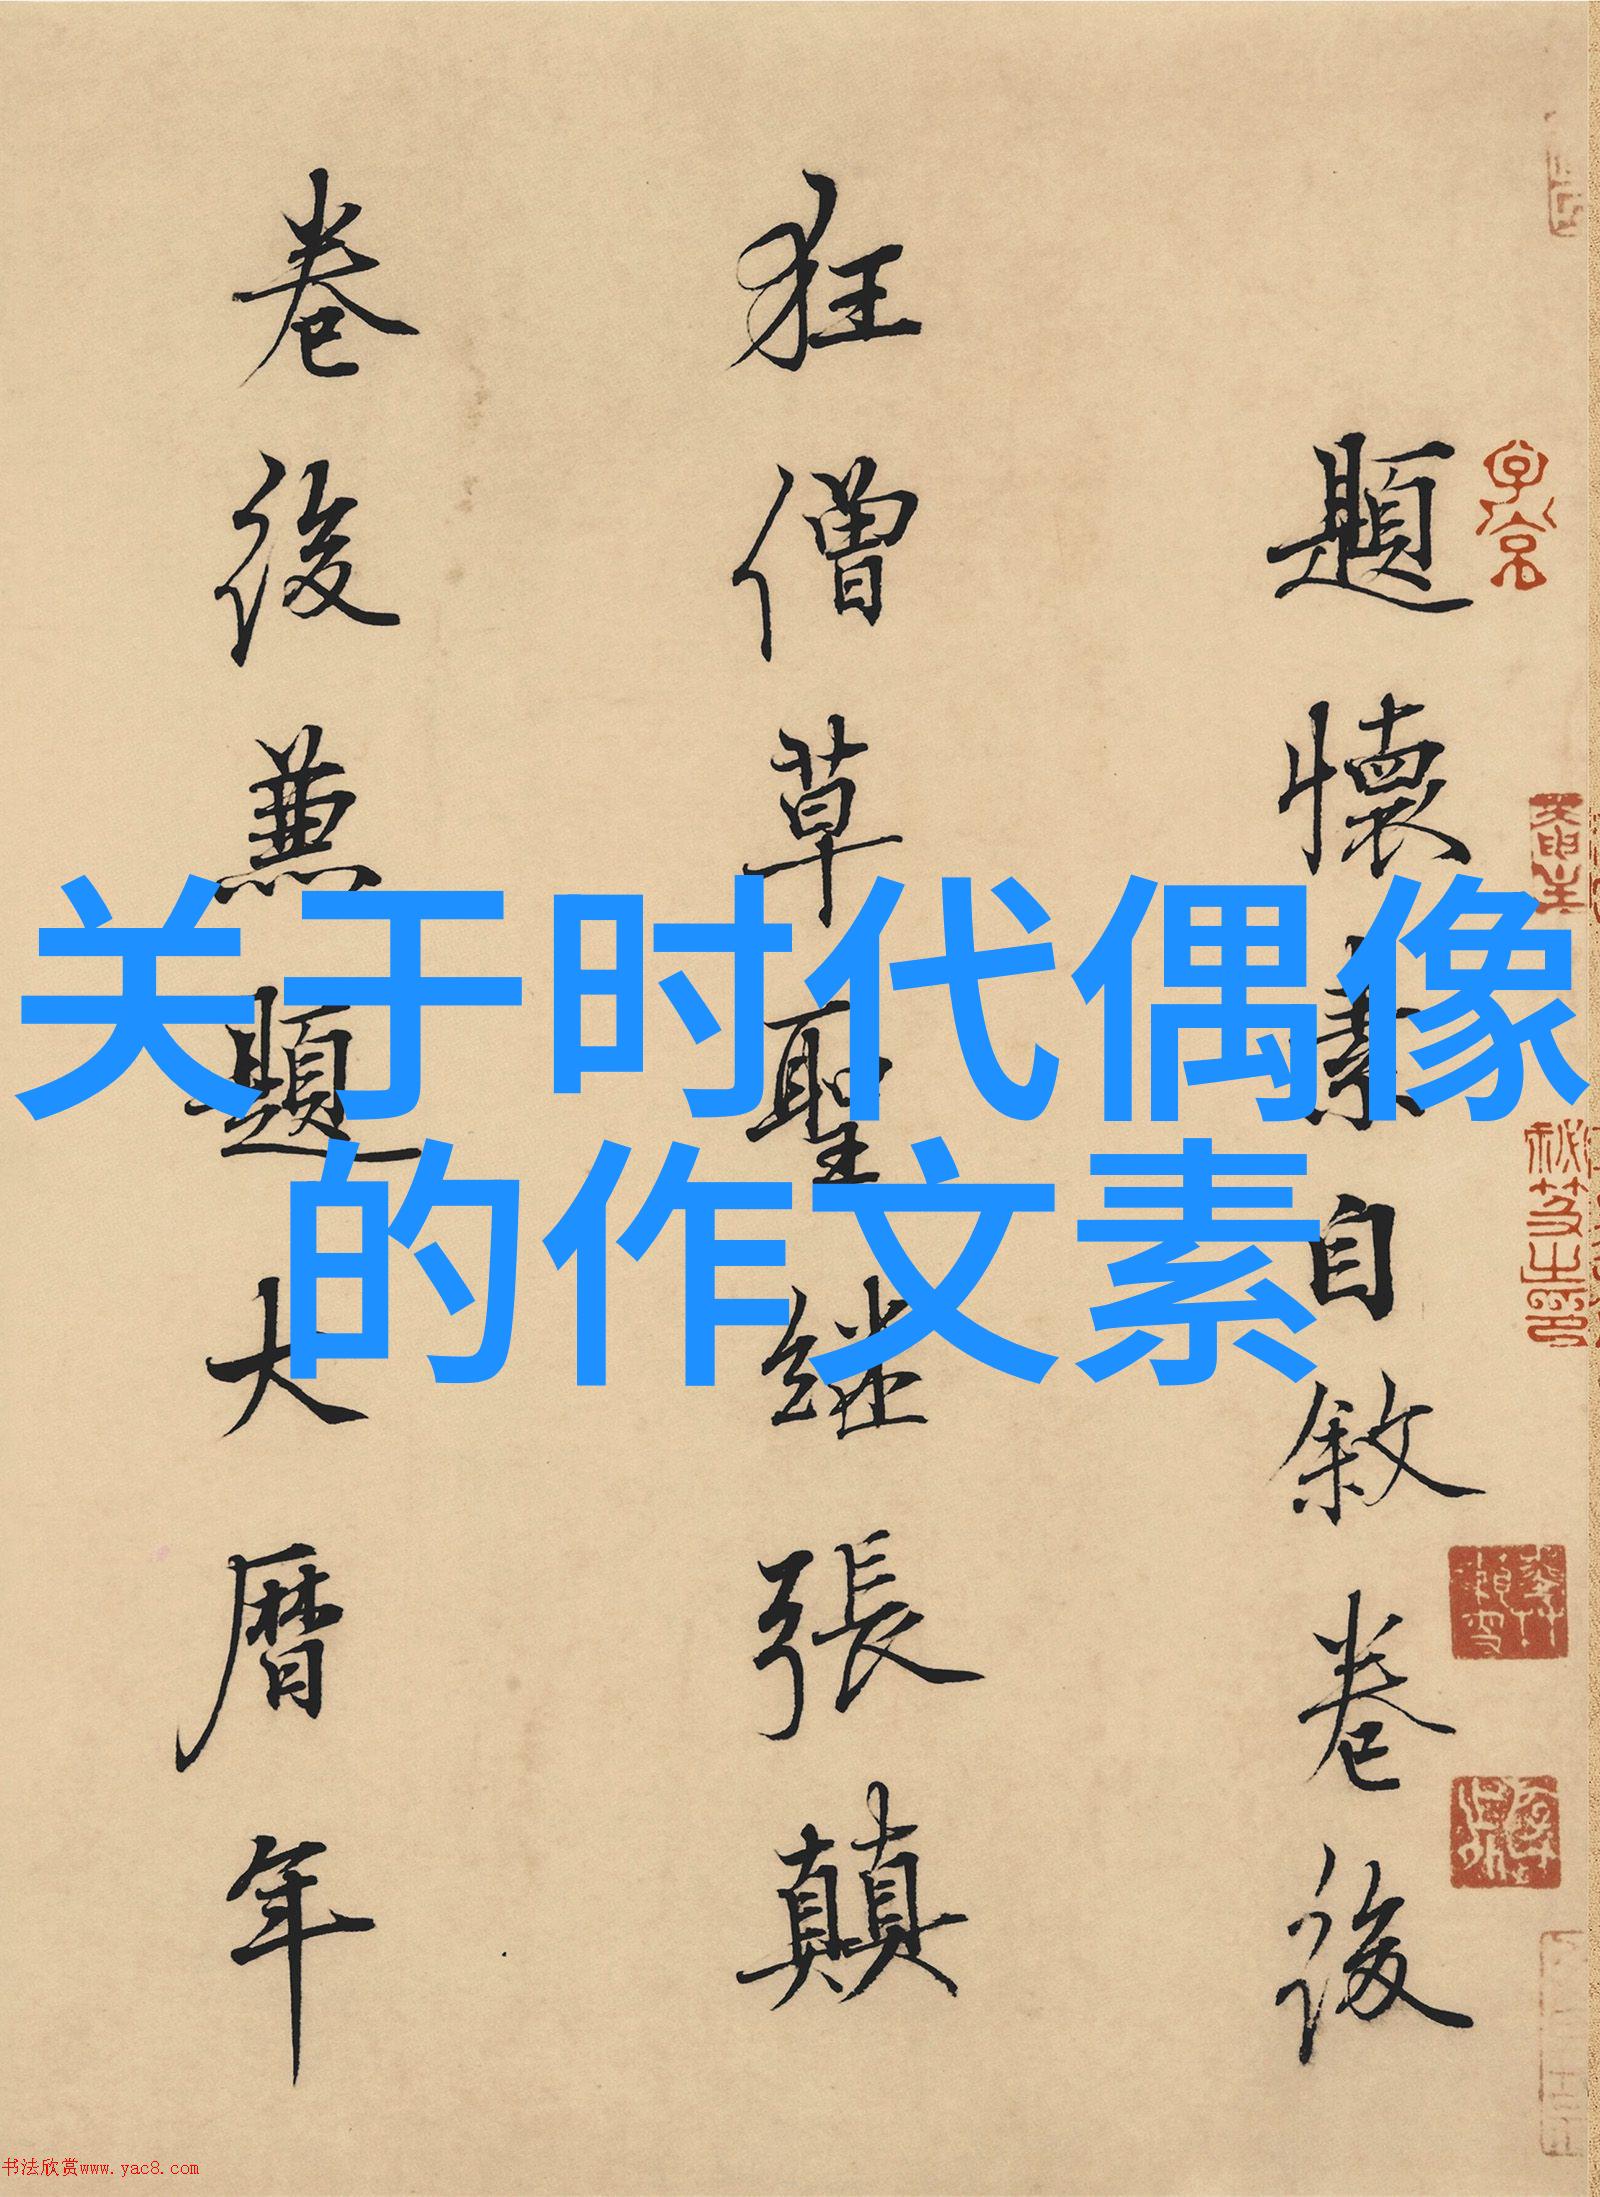 关于时代偶像
的作文素
題懷素自敘卷後
狂僧草聖继張顛
卷後兼題大曆年
书法欣赏www.yac8.com